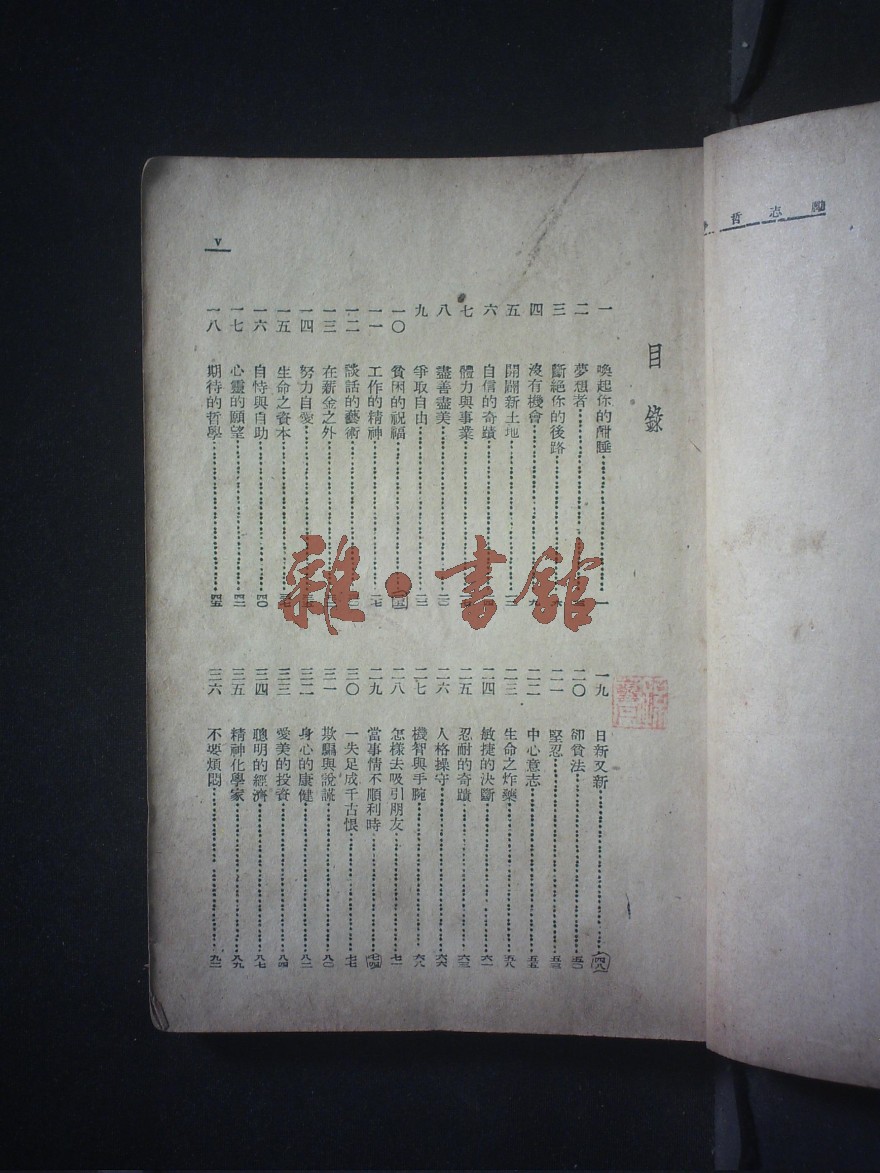 勵志哲
目錄
一 喚起你的酣睡 一
二 夢想者
三 斷絕你的後路
四 沒有機會
五 開闢新土地
六 自信的奇蹟
七 體力與事業
八 盡善盡美
九 爭取自由
一〇 貧困的祝福
一一 工作的精神
一二 談話的藝術
一三 在薪金之外
一四 努力自愛
一五 生命之資本
一六 自恃與自助 四〇
一七 心靈的願望 四二
一八 期待的哲學 四五
一九 日新又新 四八
二〇 卻貧法 五〇
二一 堅忍 五三
二二 中心意志 五五
二三 生命之炸藥 五八
二四 敏捷的決斷 六一
二五 忍耐的奇蹟 六三
二六 人格操守 六六
二七 機智與手腕 六八
二八 怎樣去吸引朋友 七一
二九 當事情不順利時 七四
三〇 一失足成千古恨 七七
三一 欺騙與說謊 八〇
三二 身心的康健 八二
三三 愛美的投資 八四
三四 聰明的經濟 八七
三五 精神化學家 八九
三六 不要煩悶 九二
V
雜·書館